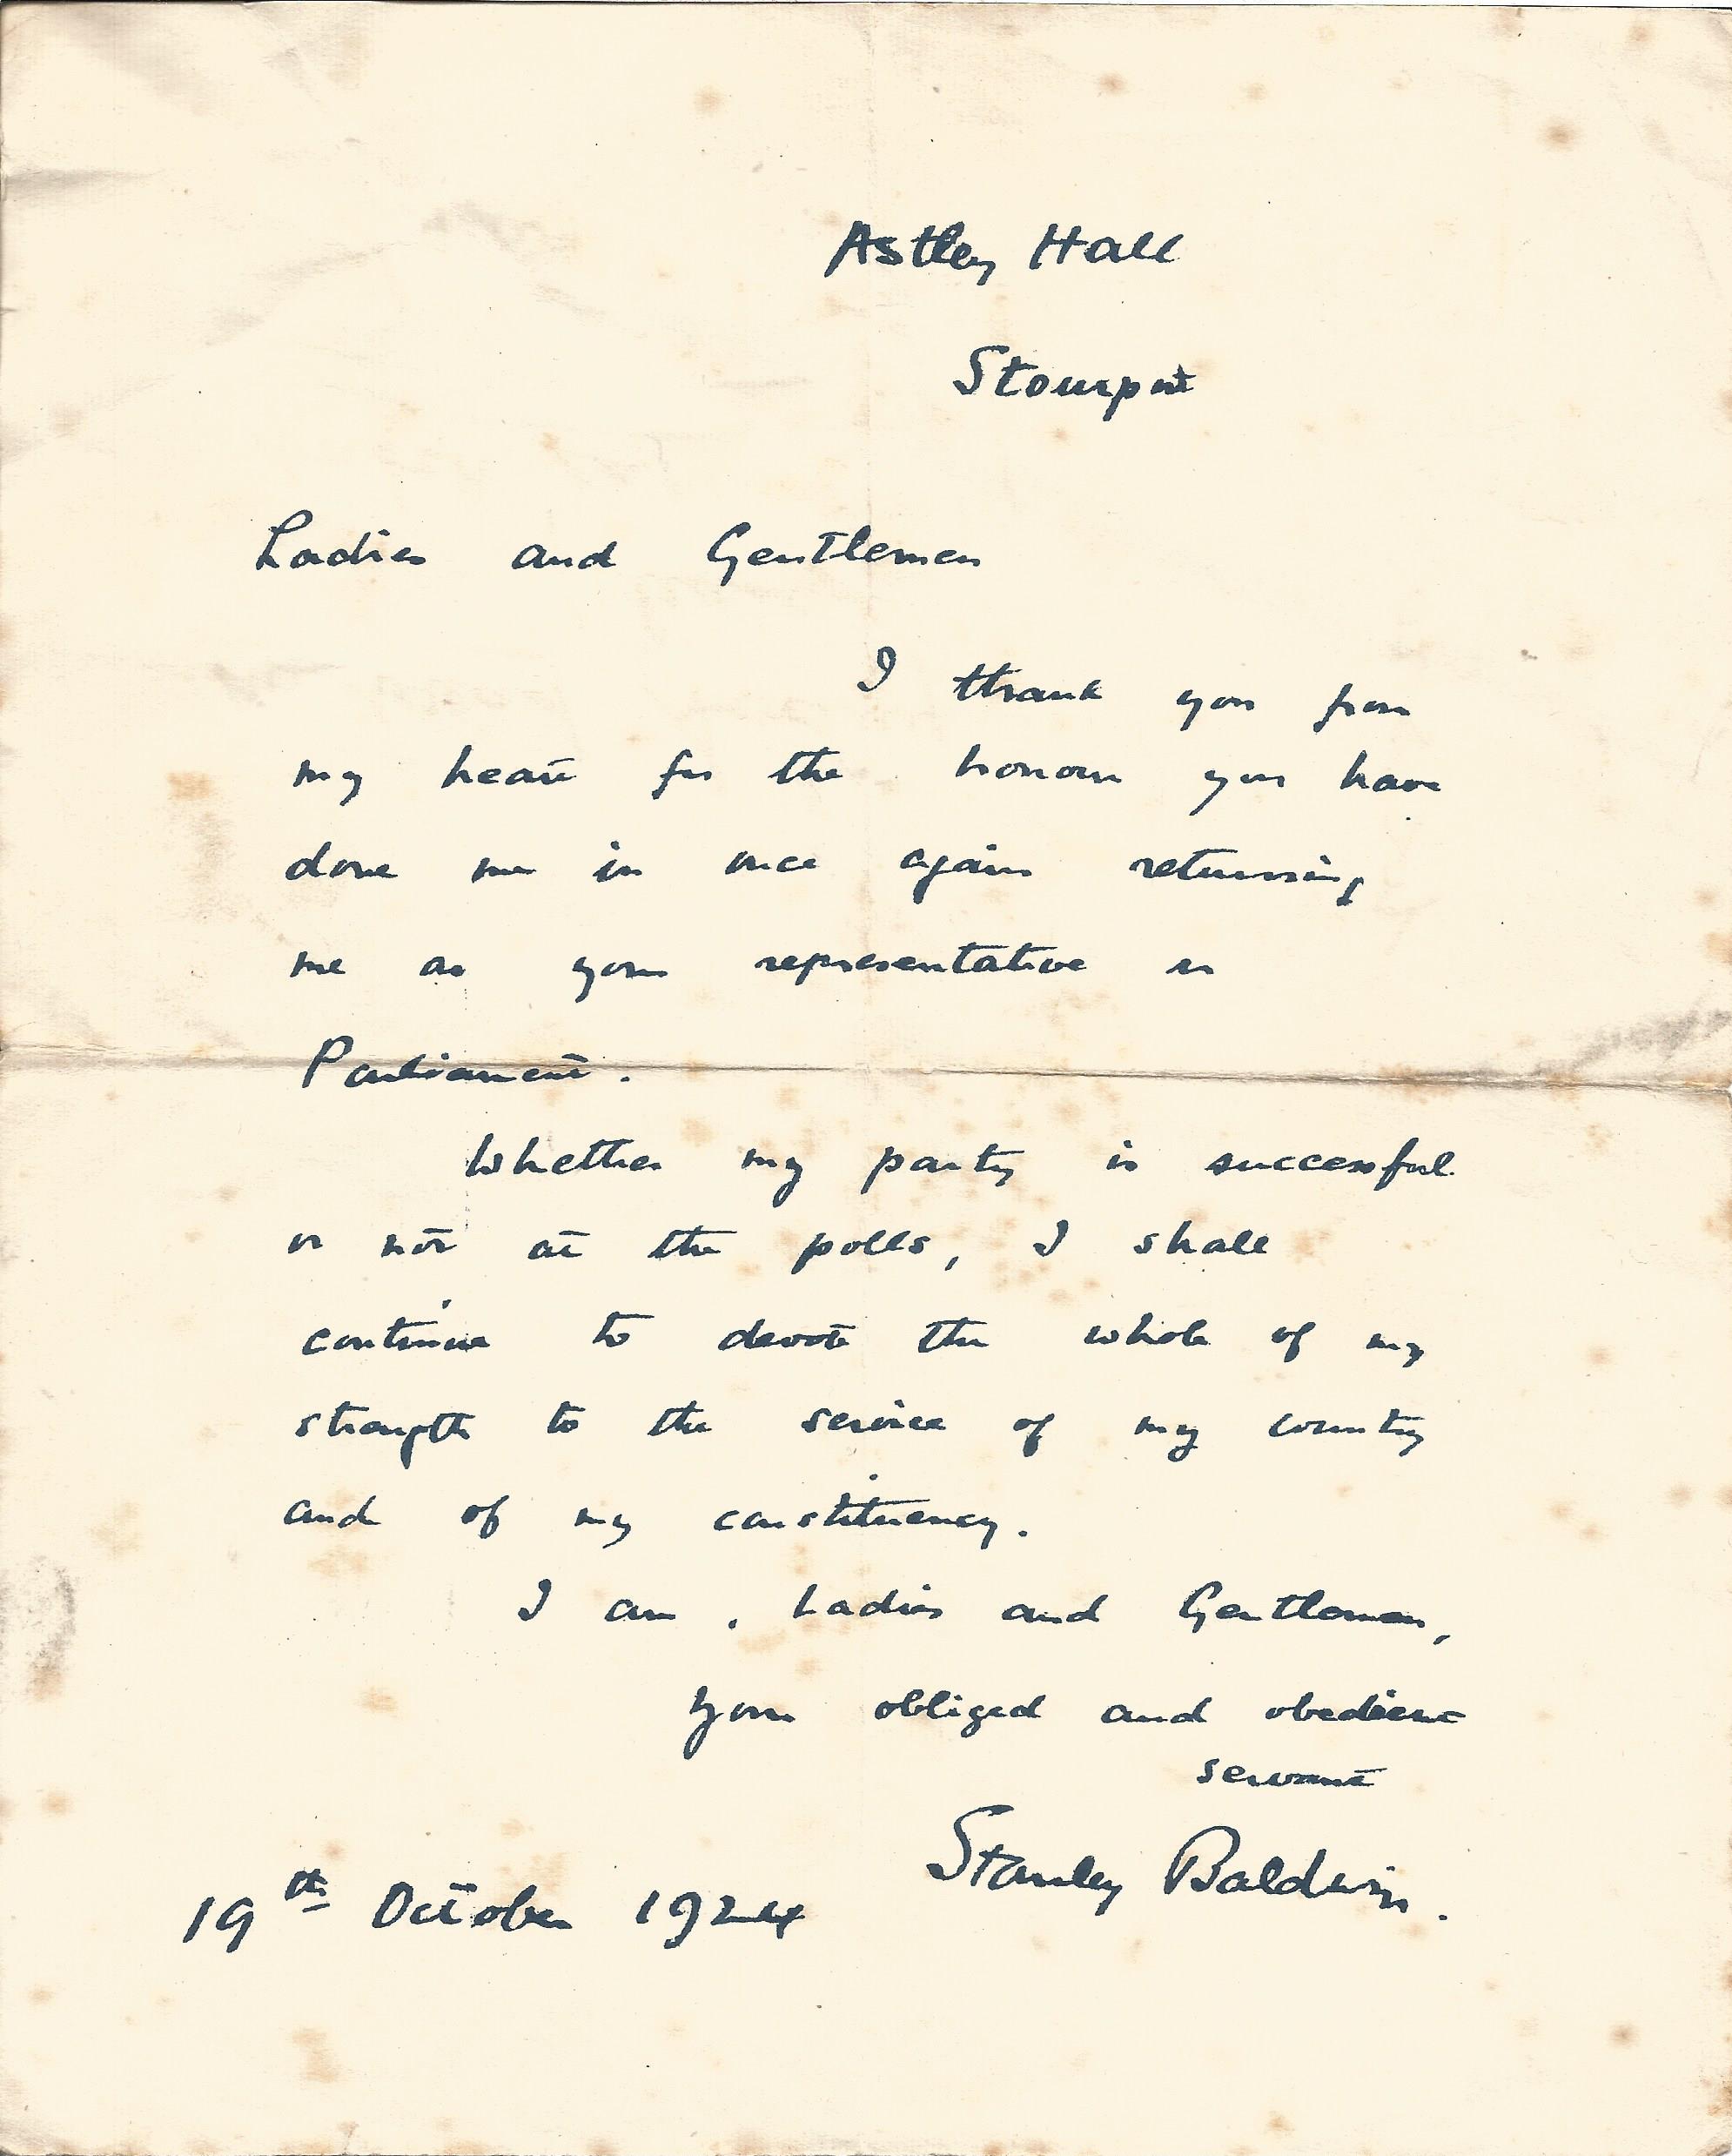 Astley Hall
Stourport
Ladies and Gentlemen
I thank you from
my heart for the honour you have
done me in once again returning
me as your representative in
Parliament.
Whether my party is successful
or not at the polls, I shall
continue to devote the whole of my
strength to the service of my country
and of my constituency.
I am, Ladies and Gentlemen,
your obliged and obedient
servant
Stanley Baldwin.
19th October 1924